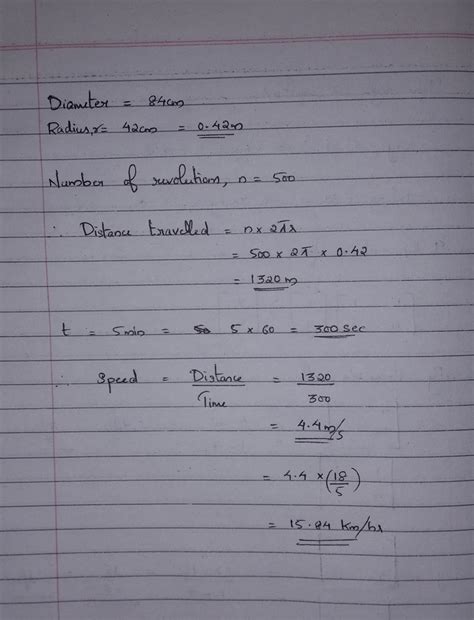 Diameter = 84cm
Radius, r = 42cm = 0.42m
Number of revolutions, n = 500
∴ Distance travelled = n x 2πr
= 500 x 2π x 0.42
= 1320 m
t = 5min = 5 x 60 = 300 sec
∴ Speed = Distance/Time = 1320/300
= 4.4 m/s
= 4.4 x (18/5)
= 15.84 km/hr